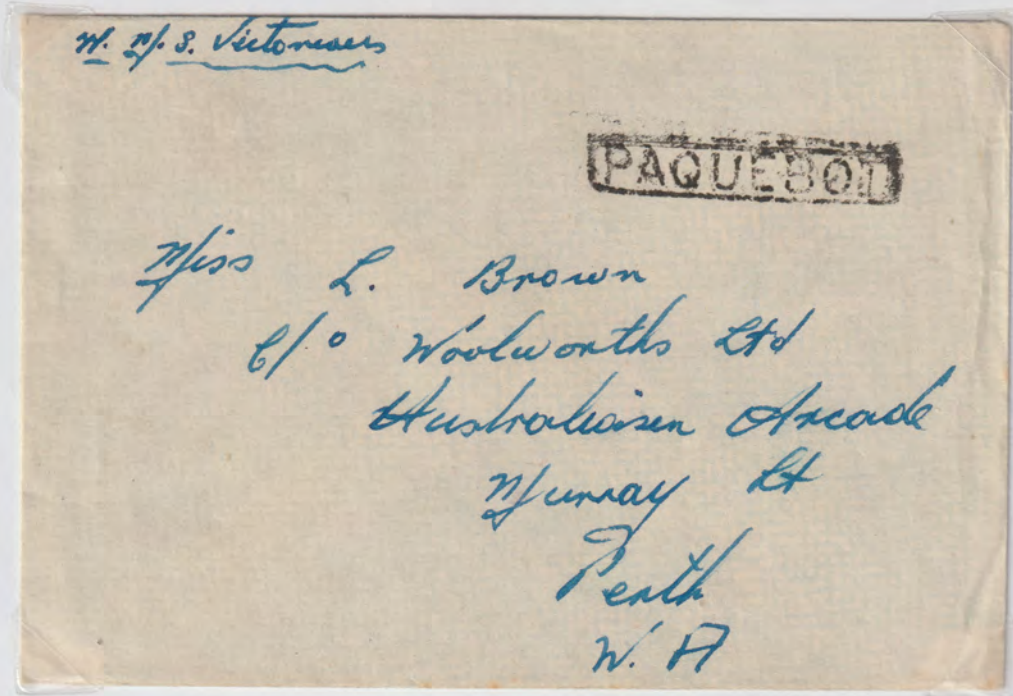 H. M. S. Victorious
PAQUEBOT
Miss L. Brown
C/o Woolworths Ltd
Australiaisen Arcade
Murray St
Perth
W. A